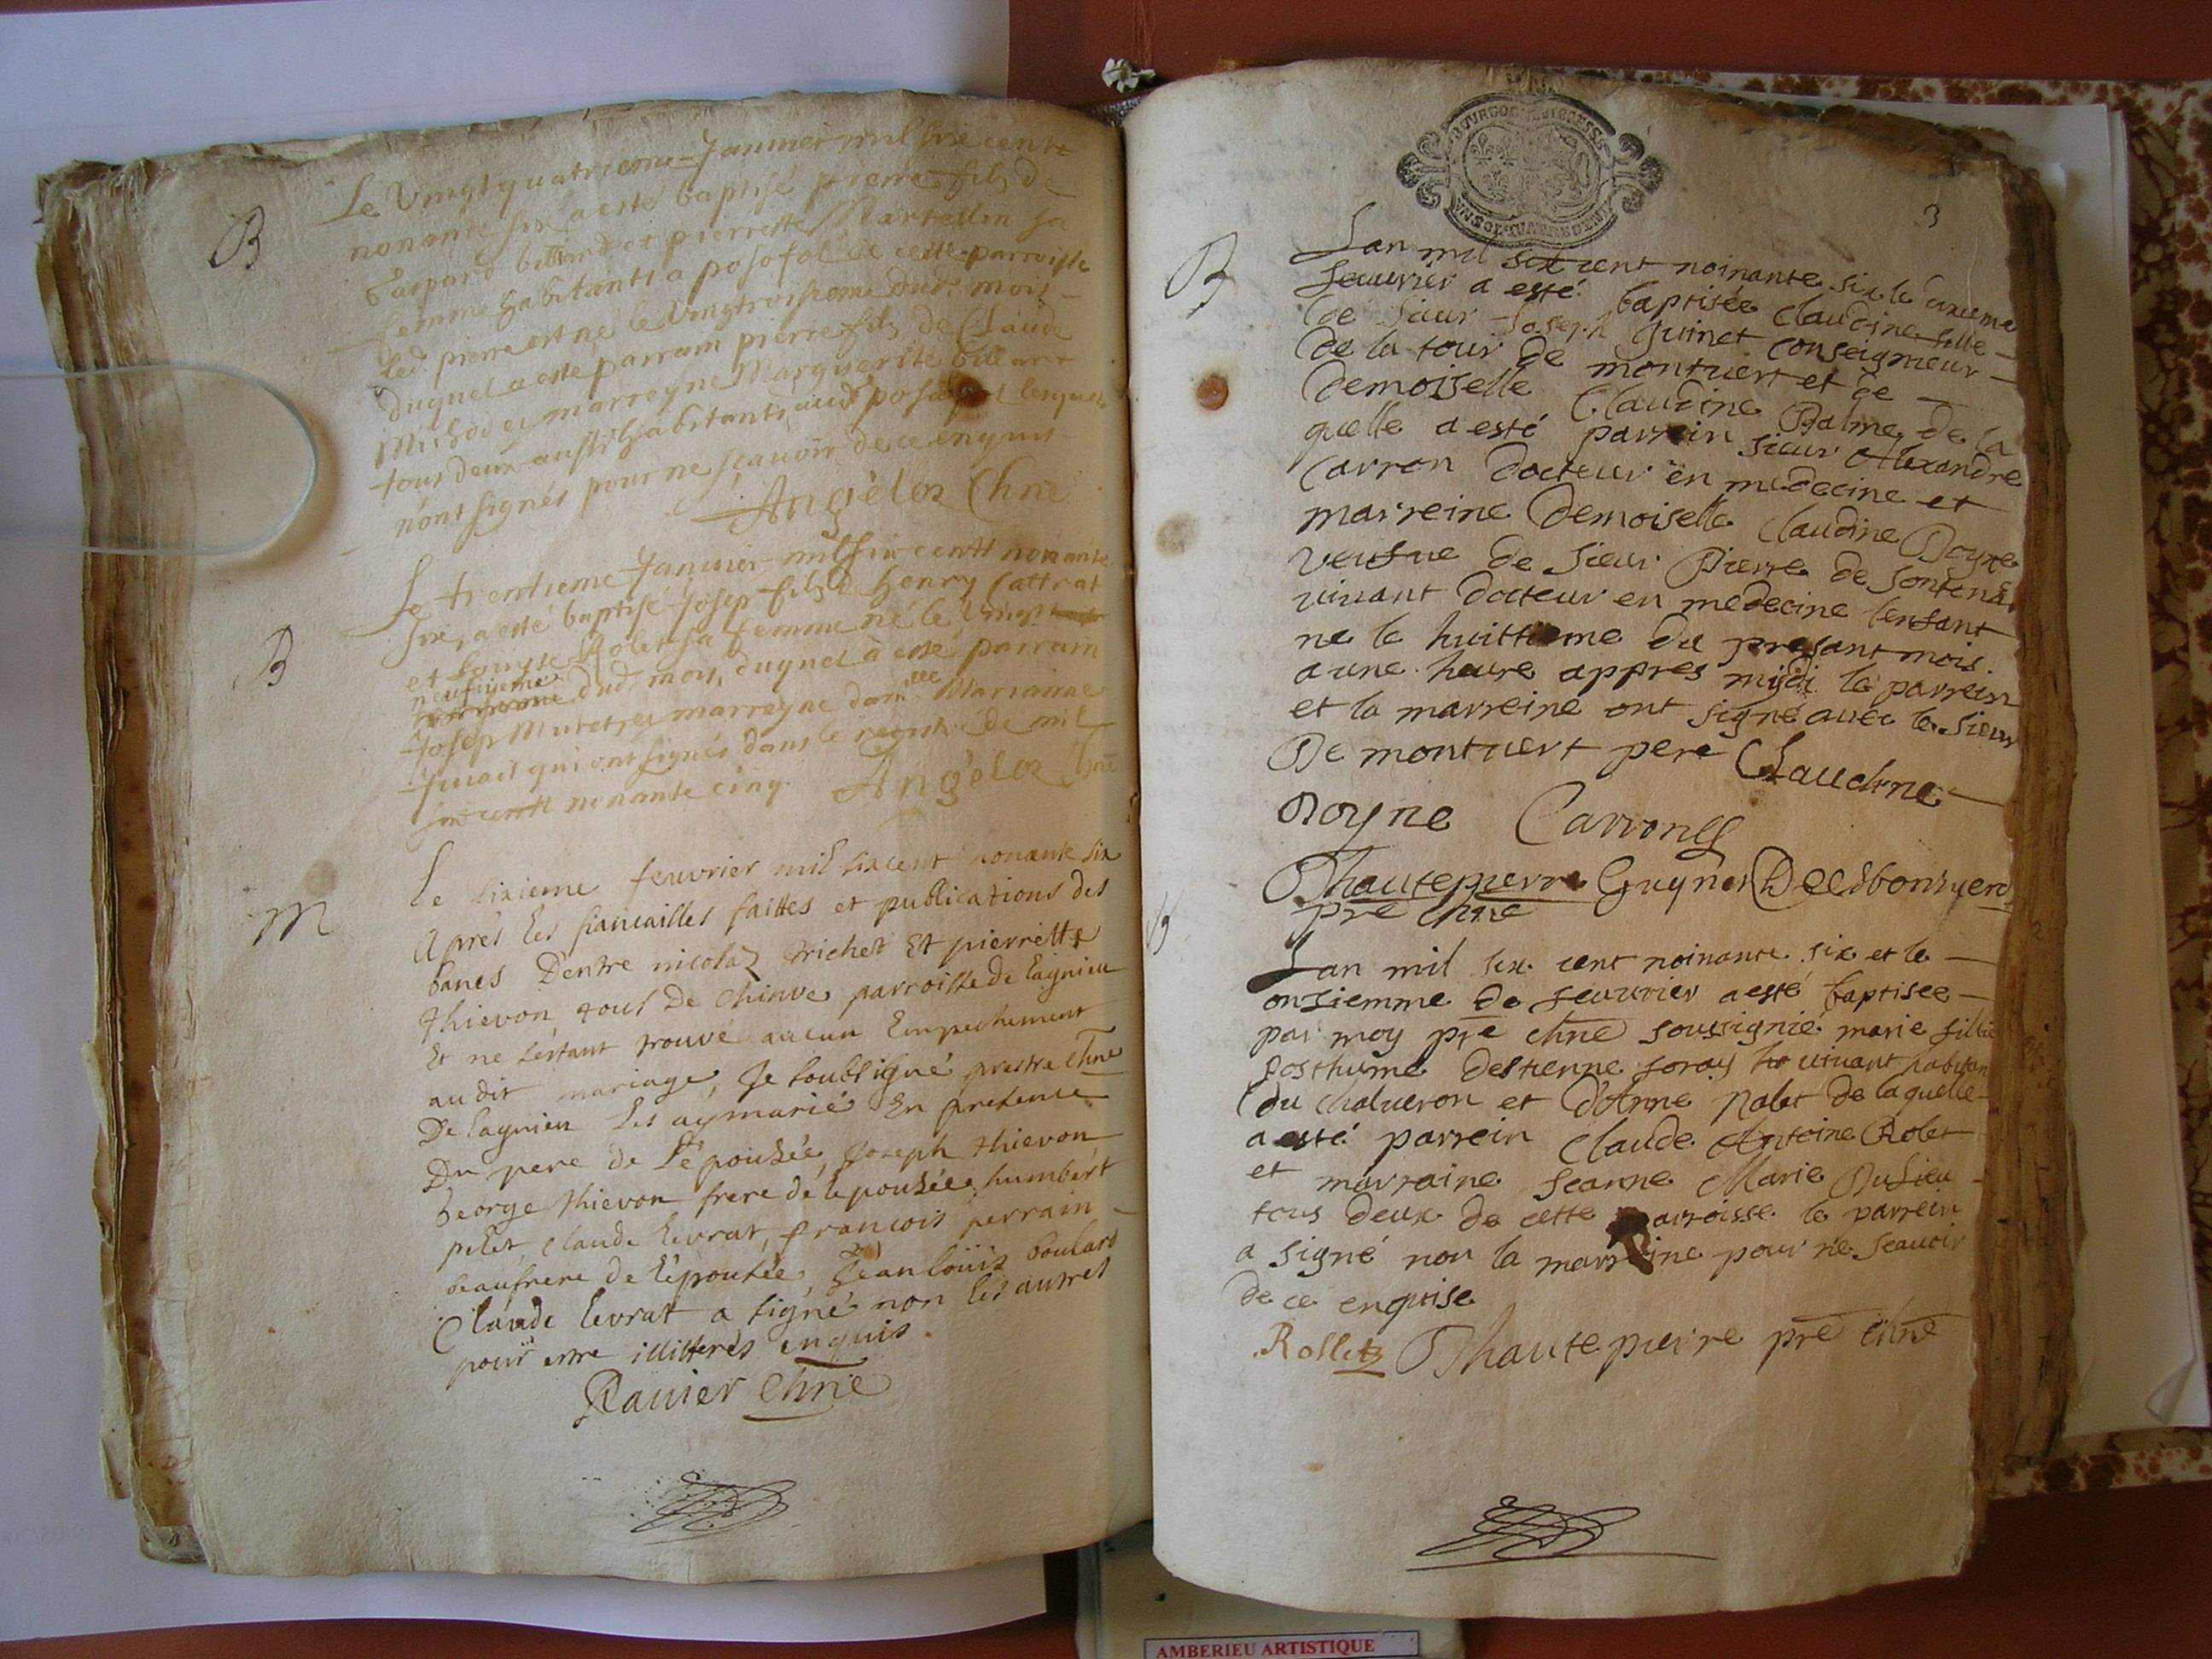 B
Le Vingt quatrieme Januier mil six cent
nonante six a esté baptisé pierre fils de
Gaspard billiand et pierrette Martellin sa
femme habitants a posafol de cette parroisse
led. pierre est né le Vingtroisieme dud. mois
duquel a esté parrain pierre fils de Claude
et marreyne Marguerite billiand
tous deux aussi habitants aud posafol lesquels
n'ont signés pour ne sçauoir de ce enquis
Angeloz Chne
B
Le trentieme Januier mil six centt nonante
six, a esté baptisé Josep fils d henry Cattrat
et Louyse Rolet sa femme né le Vingt
neufuieme dud. mois, duquel à esté parrain
Josep Muret et marreyne dam.lle Marianne
Juuait qui ont signés dans le registre de mil
six centt nonante cinq Angeloz Chne
M
Le sixieme feuvrier mil six cent nonante six
Apres les fiancailles faittes et publications des
bancs Dentre nicolaz trichet Et pierrette
thievon tous De Chinve parroisse de lagnieu
Et ne s'estant trouvé aucun Empechement
au dit mariage, Je soubsigné prestre Chne
De lagnieu les ay marié En presence
Du pere de L'épousée, Joseph thievon
George thievon frere de lepousée, humbert
pelet, Claude levrat, francois perrain
beaufrere de l'épousée, Jean louis boulard
Claude levrat a signé non les autres
pour estre illitterés enquis.
Rauier Chne
3
B
Lan mil six cent noinante six le onxieme
feuurier a esté baptisée Claudine fille
de sieur Joseph Guinet conseigneur
de la tour de montuert et de
demoiselle Claudine Balme de la
quelle a esté parrein sieur Alexandre
Carron docteur en medecine et
marreine Demoiselle Claudine Doyne
veufue de sieur Pierre de
viuant docteur en medecine lenfant
ne le huittieme du presant mois
a une heure appres midi le parrein
et la marreine ont signé auec le sieur
De montuert pere Claudine
Doyne Carron
Thautepierre Guynet De
pre chne
B
Lan mil six cent noinante six et le
onsiemme de feuurier a esté baptisee
par moy pre chne soussignié marie fillie
posthume destienne foray viuant habitan
du chalueron et d'Anne Rolet de laquelle
a esté parrein Claude Antoine Rolet
et marraine Jeanne Marie Dulieu
tous deux de cette parroisse le parrein
a signé non la marreine pour ne scauoir
de ce enquise
Rollet Thautepierre pre chne
AMBERIEU ARTISTIQUE